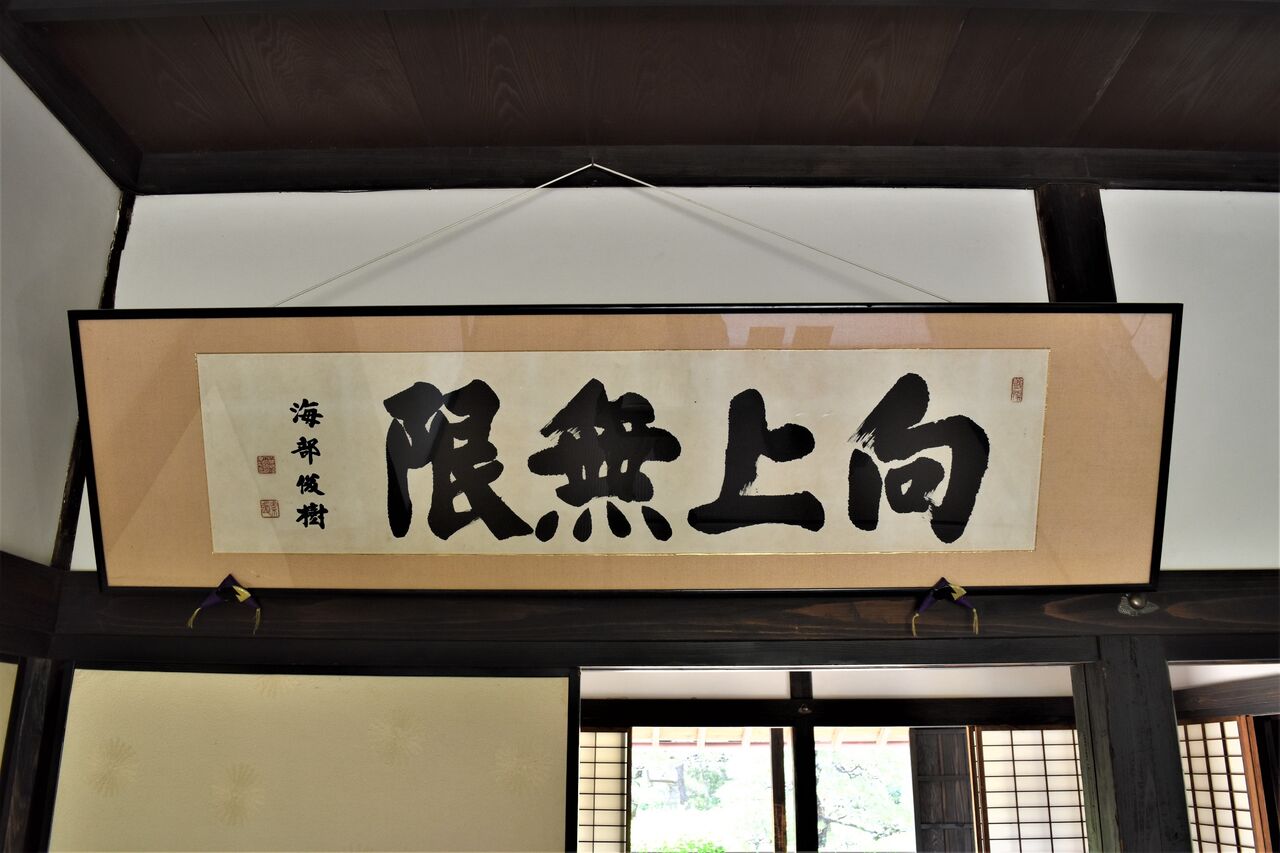 向上無限
海部俊樹